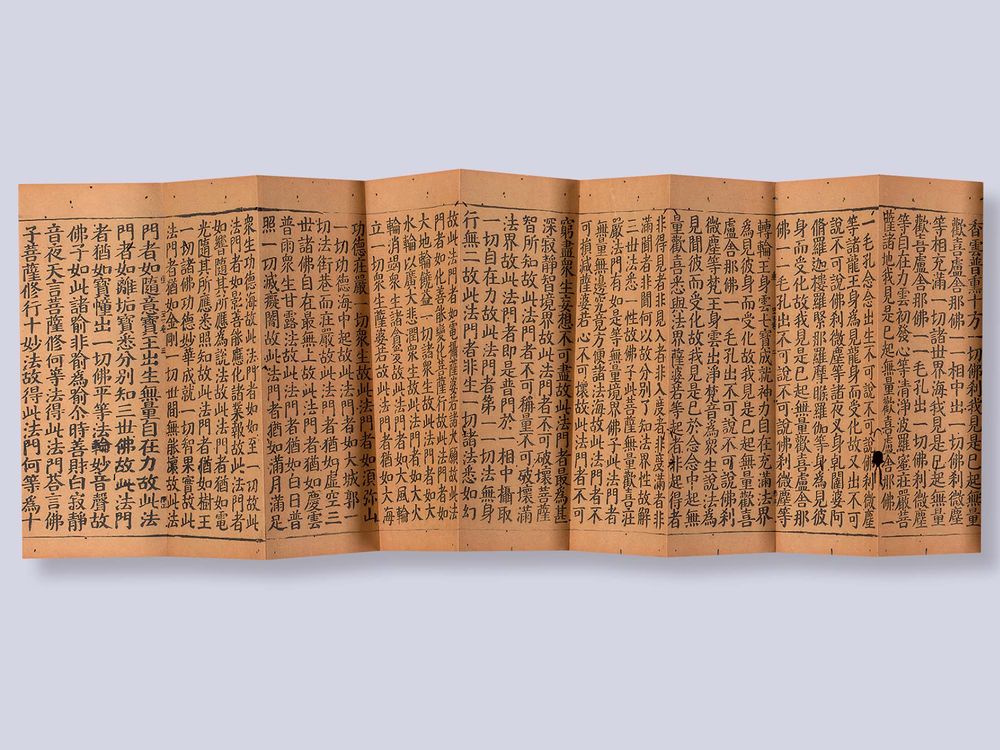 香雲普熏十方一切佛刹我見是已起無量
歡喜盧舍那佛一一相中出一切佛刹微塵
等相充滿一切諸世界海我見是已起無量
歡喜盧舍那佛一一毛孔出一切佛刹微塵
等自在力雲初發心等清淨波羅蜜莊嚴菩
薩諸地我見是已起無量歡喜盧舍那佛一
一毛孔念念出生不可說不可說佛刹微塵
等諸龍王身為見龍身而受化故又出不可
說不可說佛刹微塵等諸夜叉身乾闥婆阿
脩羅迦樓羅緊那羅摩睺羅伽身等為見彼
身而受化故我見是已起無量歡喜盧舍那
佛一一毛孔出不可說不可說佛刹微塵等
轉輪王身雲七寶成就神力自在充滿法界
為見彼身而受化故我見是已起無量歡喜
盧舍那佛一一毛孔出不可說不可說佛刹
微塵等梵王身雲出淨梵音為衆生說法為
見聞彼而受化故我見是已於念念中起無
量歡喜悉與法界薩婆若等起者非起得者
非得見者非見入者非入度者非度滿者非
滿聞者非聞何以故分別了知法界性故解
三世法悉一性故佛子此菩薩無量歡喜莊
嚴法門有如是等無量境界佛子此法門者
無量無邊究竟方便諸法海故此法門者不
可損減薩婆若心不可壞故此法門者不可
窮盡衆生妄想不可盡故此法門者最為甚
深寂靜智境界故此法門者不可破壞菩薩
智所知故此法門者不可稱量不可破壞滿
法界故此法門者即是普門於一相中攝取
一切自在力故此法門者第一一切法無身
行無二故此法門者非生一切諸法悉如幻
故此法門者如電攝薩婆若諸大願故此法
門者如化菩薩能變化菩薩行故此法門者如
大地輪饒益一切諸衆生故此法門者如大
水輪以廣大悲潤衆生故此法門者如大火
輪消竭衆生諸貪愛故此法門者如大風輪
立一切衆生薩婆若故此法門者猶如大海
功德莊嚴一切衆生故此法門者如須彌山
一切功德海中起故此法門者如大城郭一
切法街巷而莊嚴故此法門者猶如虛空三
世諸佛自在最無上故此法門者猶如慶雲
普雨衆生甘露法故此法門者猶如白日普
照一切滅癡闇故此法門者猶如滿月滿足
衆生功德海故此法門者如如至一切故此
法門者如影菩薩能應化諸業報故此法門者
如響菩薩隨其所應為說法故此法門者猶如電
光隨其所應悉照知故此法門者猶如樹王
一切諸佛功德妙華成就一切智果實故此
法門者猶如金剛一切世間無能壞故此法
門者如隨意寶王出生無量自在力故此法
門者如離垢寶悉分別知三世佛故此法門
者猶如寶幢出一切佛平等法輪妙音聲故
佛子如此諸喻非喻為喻尒時善財白寂靜
音夜天言菩薩修何等法得此法門荅言佛
子菩薩修行十妙法故得此法門何等為十